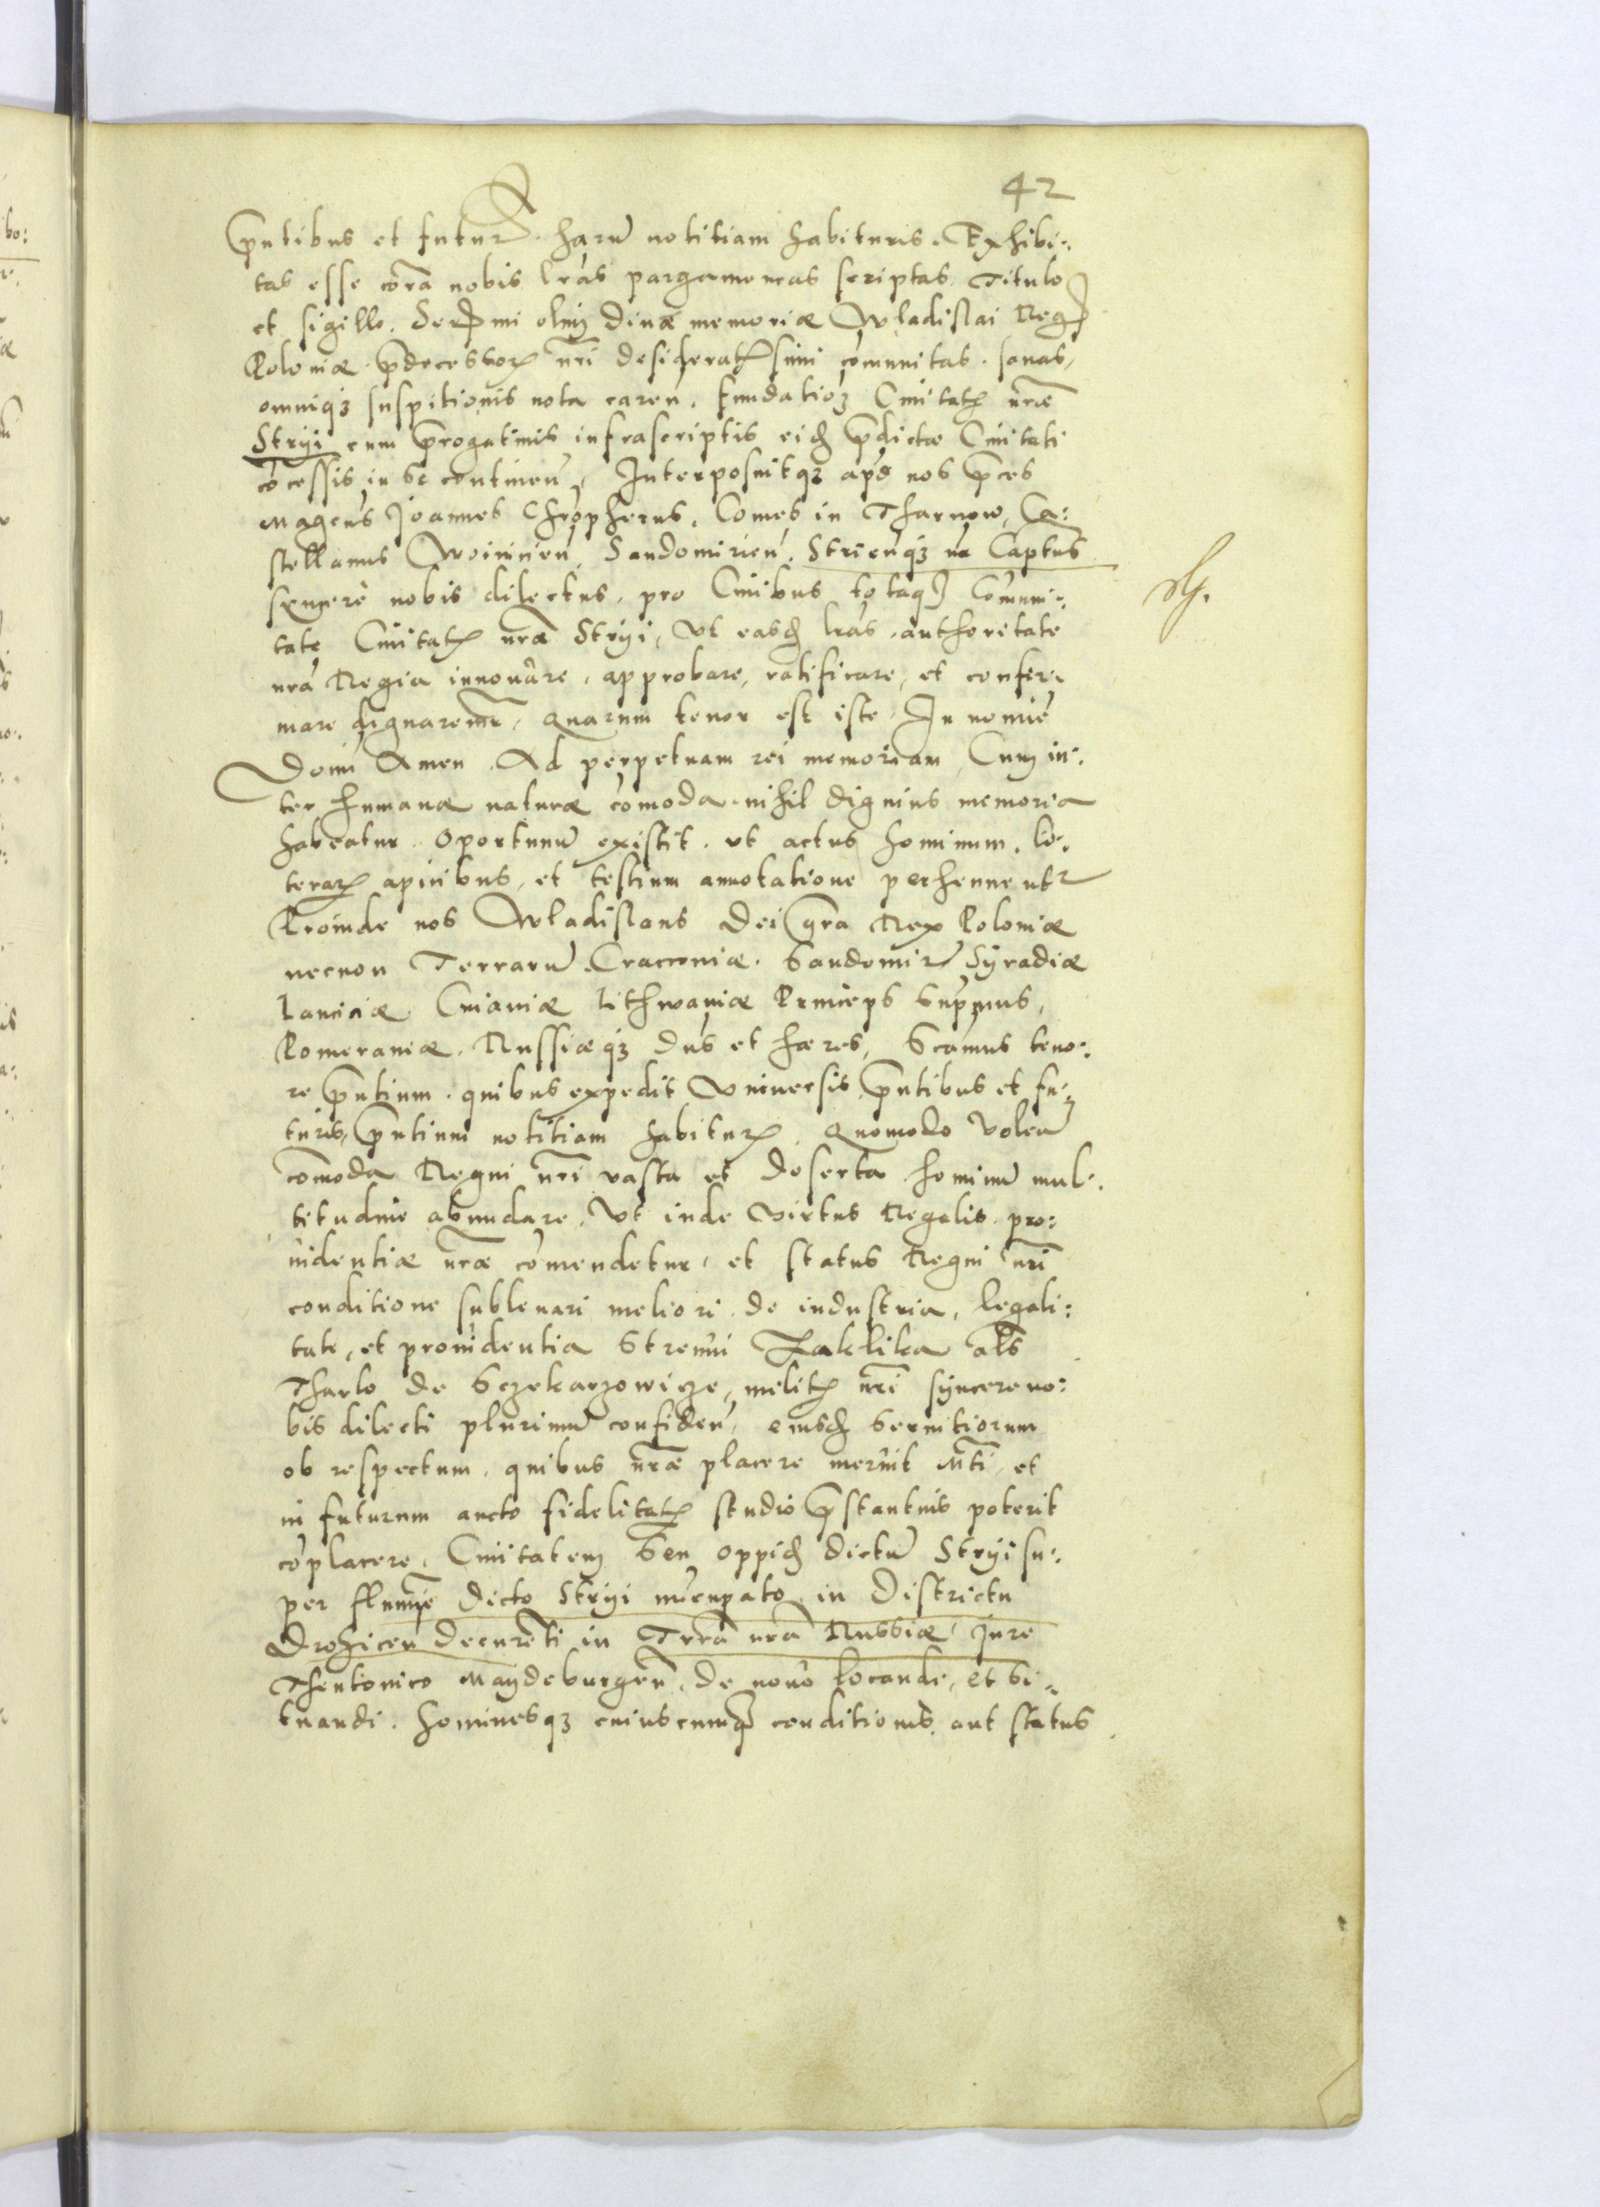 42
pntibus et futur. haru notitiam habituris. Exhibi:
tas esse cora nobis lras pargameneas scriptas Titulo
et sigillo. Sermi olim diuæ memoriæ Wladislai Reg
Poloniæ pdecessor nri desideratssimi comunitas. sanas,
omniqz suspitionis nota caren. fundatioz Ciuitat nræ
Stryi cum progatiuis infrascriptis eid pdictæ Ciuitati
cocessis in se continen, Interposuitqz apd nos pces
Magcus Joannes Chropherus, Comes in Tharnow, Ca:
stellanus Woinicien, Sandomirien. Strienqz nr Captus
syncere nobis dilectus, pro Ciuibus totaq Comuni:
tate Ciuitat nræ Stryi, Vt easd lras authoritate
nra Regia innouare, approbare, ratificare, et confir:
mare dignaremr, quarum tenor est iste. In nomie
Domi Amen. Ad perpetuam rei memoriam, Cum in:
ter humanæ naturæ comoda. nihil dignius memoria
habeatur. Oportunu existit. vt actus hominum. li:
terar apicibus, et testium annotatione perhennentr
Proinde nos Wladislaus Dei gra Rex Poloniæ
necnon Terraru Cracouiæ. Sandomir Syradiæ
Lanciciæ Cuiauiæ Lithwaniæ Princeps Supmus,
Pomeraniæ. Russiæqz dns et hæres, Scamus teno:
re pntium. quibus expedit Vniuersis pntibus et fu:
turis, pntium notitiam habitur. Quomodo volen
comoda Regni nri vasta et deserta hominu mul:
titudine abundare, Vt inde Virtus Regalis pro:
uidentiæ nræ comendetur, et status Regni nri
conditione subleuari meliori. de industria, legali:
tate, et prouidentia Strenui Zaklika als
Tharlo de Sczekarzowicze, militis nri syncere no:
bis dilecti plurimu confiden, eiusd Seruitiorum
ob respectum. quibus nræ placere meruit Mti, et
in futurum aucto fidelitat studio pstantius poterit
coplacere. Ciuitatem Seu oppid dictu Stryi su:
per flumie dicto Stryi nucupato in Districtu
Drohicen decurenti in Terra nra Russiæ, Jure
Theutonico Maydeburgen, de nouo locandi, et Si:
tuandi. hominesqz cuiuscumq conditionis aut status